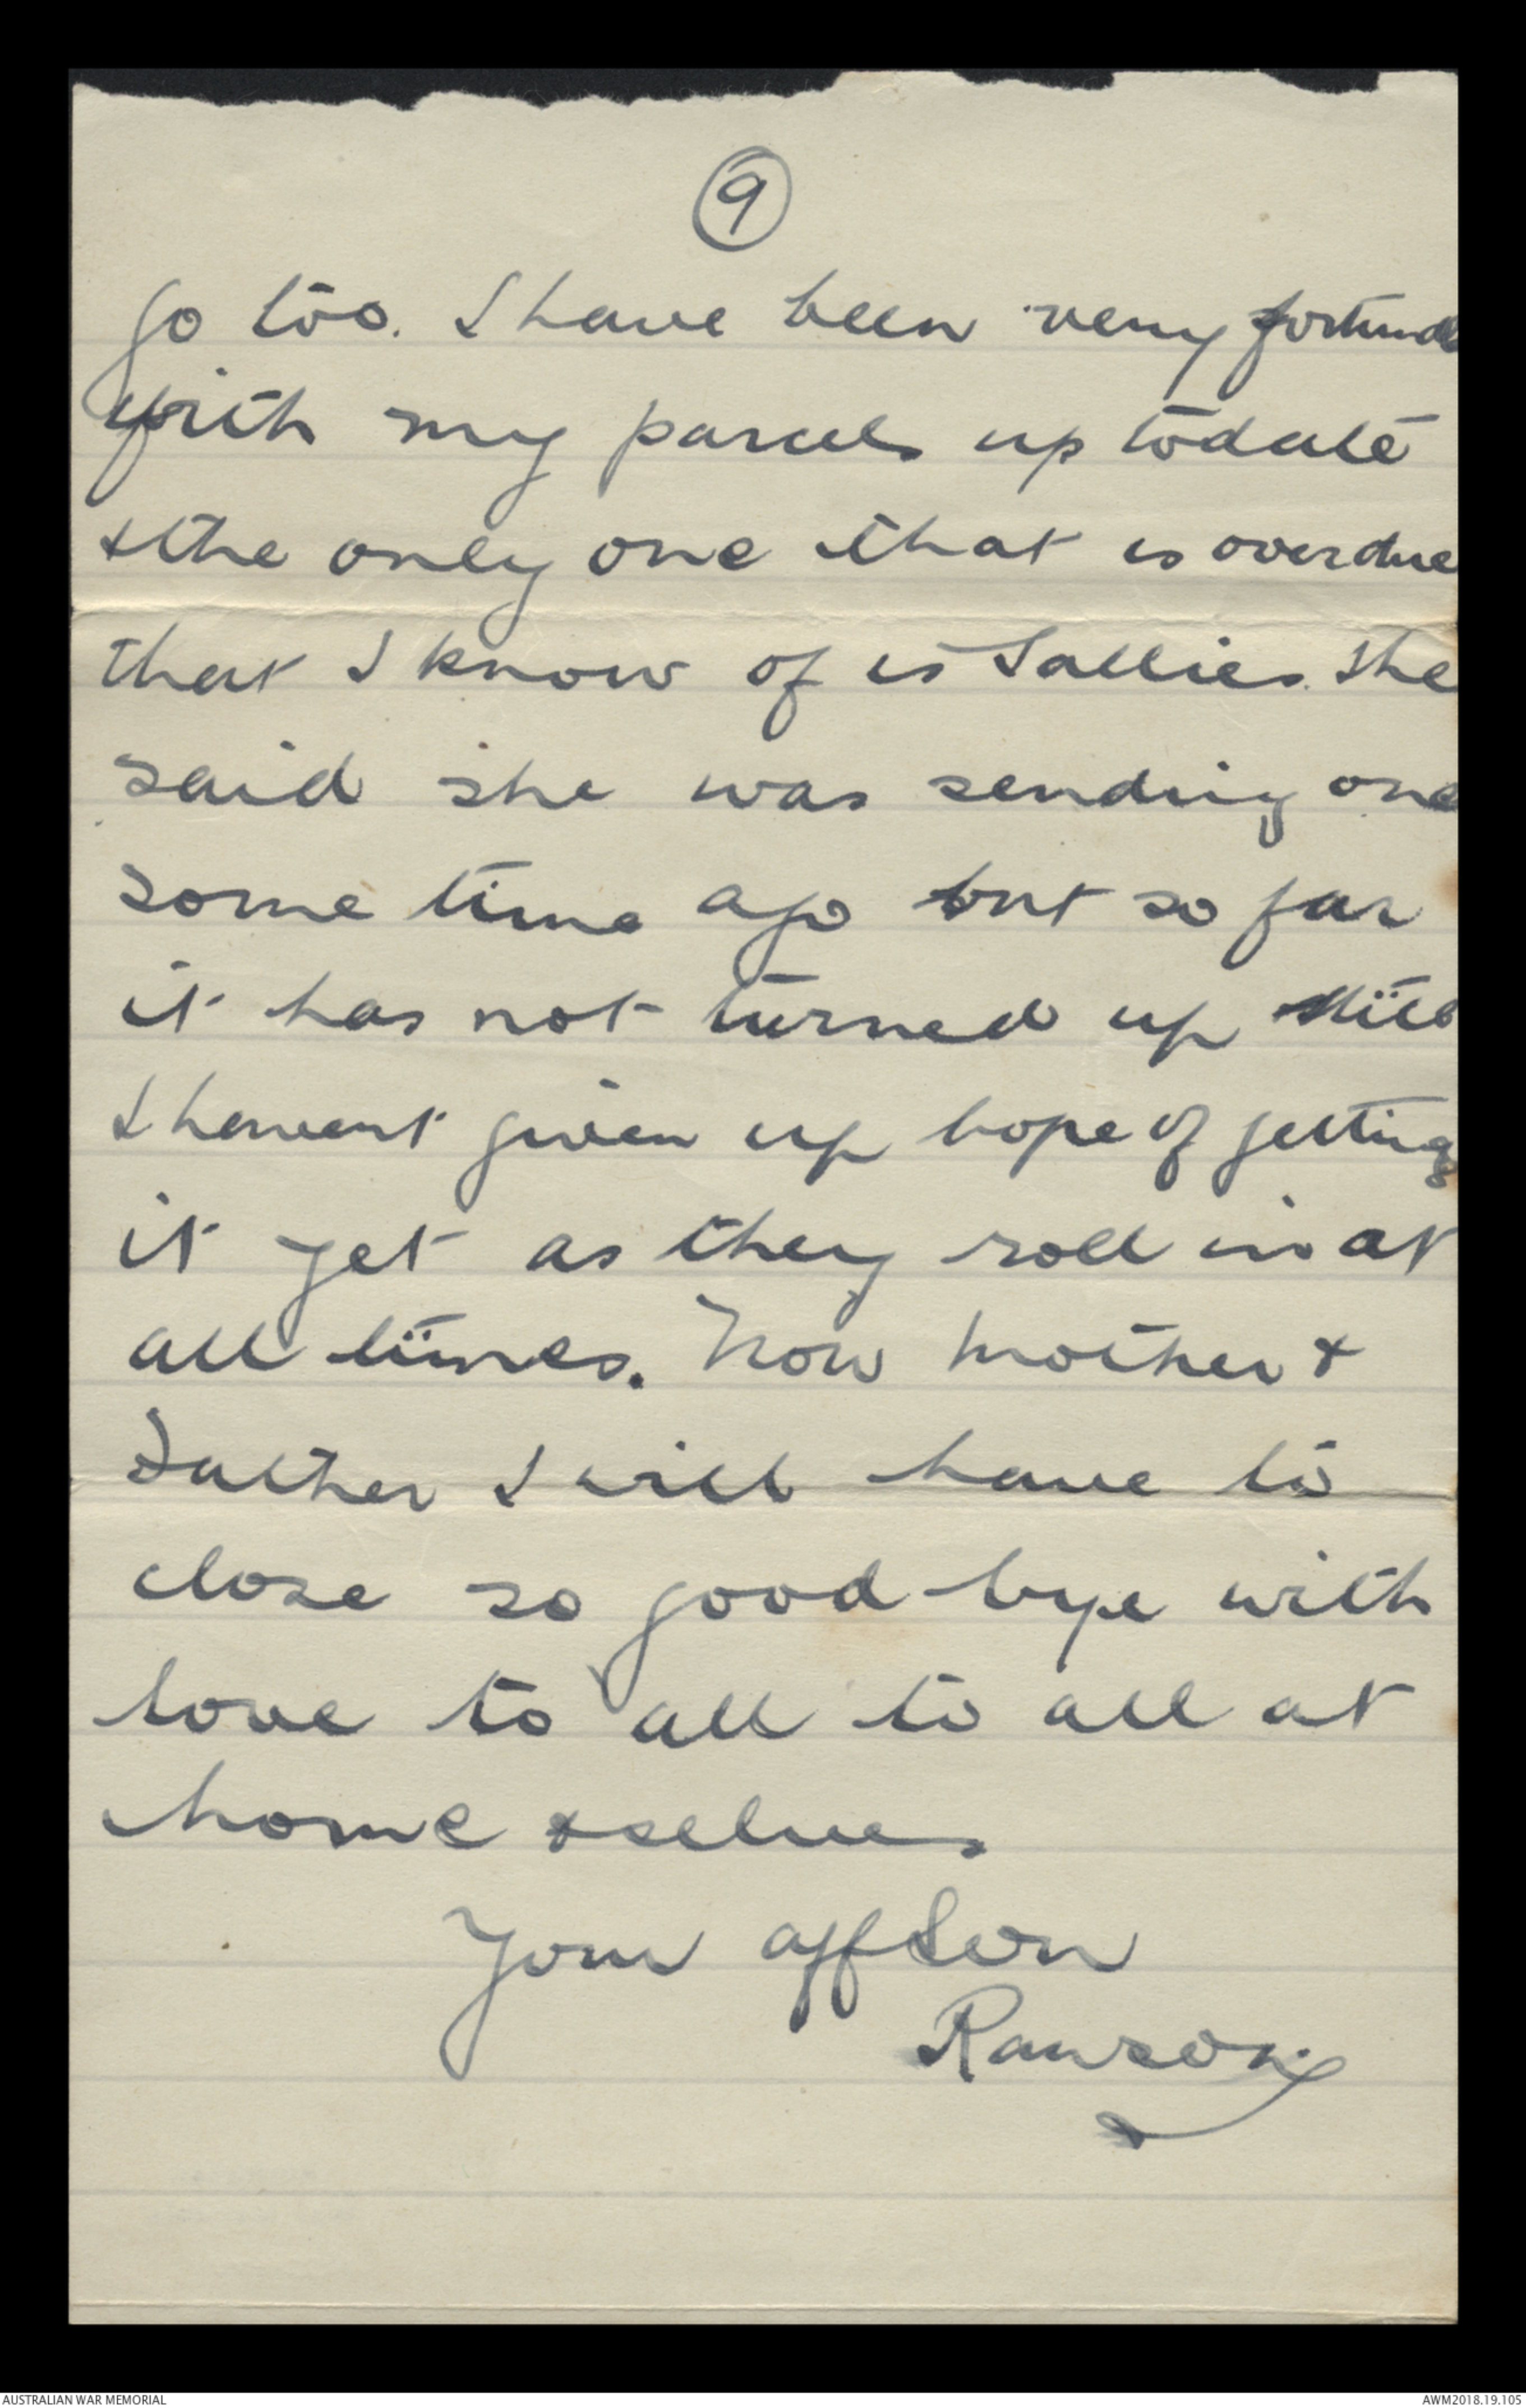 9
go too. I have been very fortunate
with my parcels up todate
& the only one that is overdue
that I know of is Sallies. She
said she was sending one
some time ago but so far
it has not turned up still
I havent given up hope of getting
it yet as they roll in at
all times. Now Mother &
Father I will have to
close so good-bye with
love to all to all at
home & selves
Your aff Son
Rawson
AUSTRALIAN WAR MEMORIAL
AWM2018.19.105